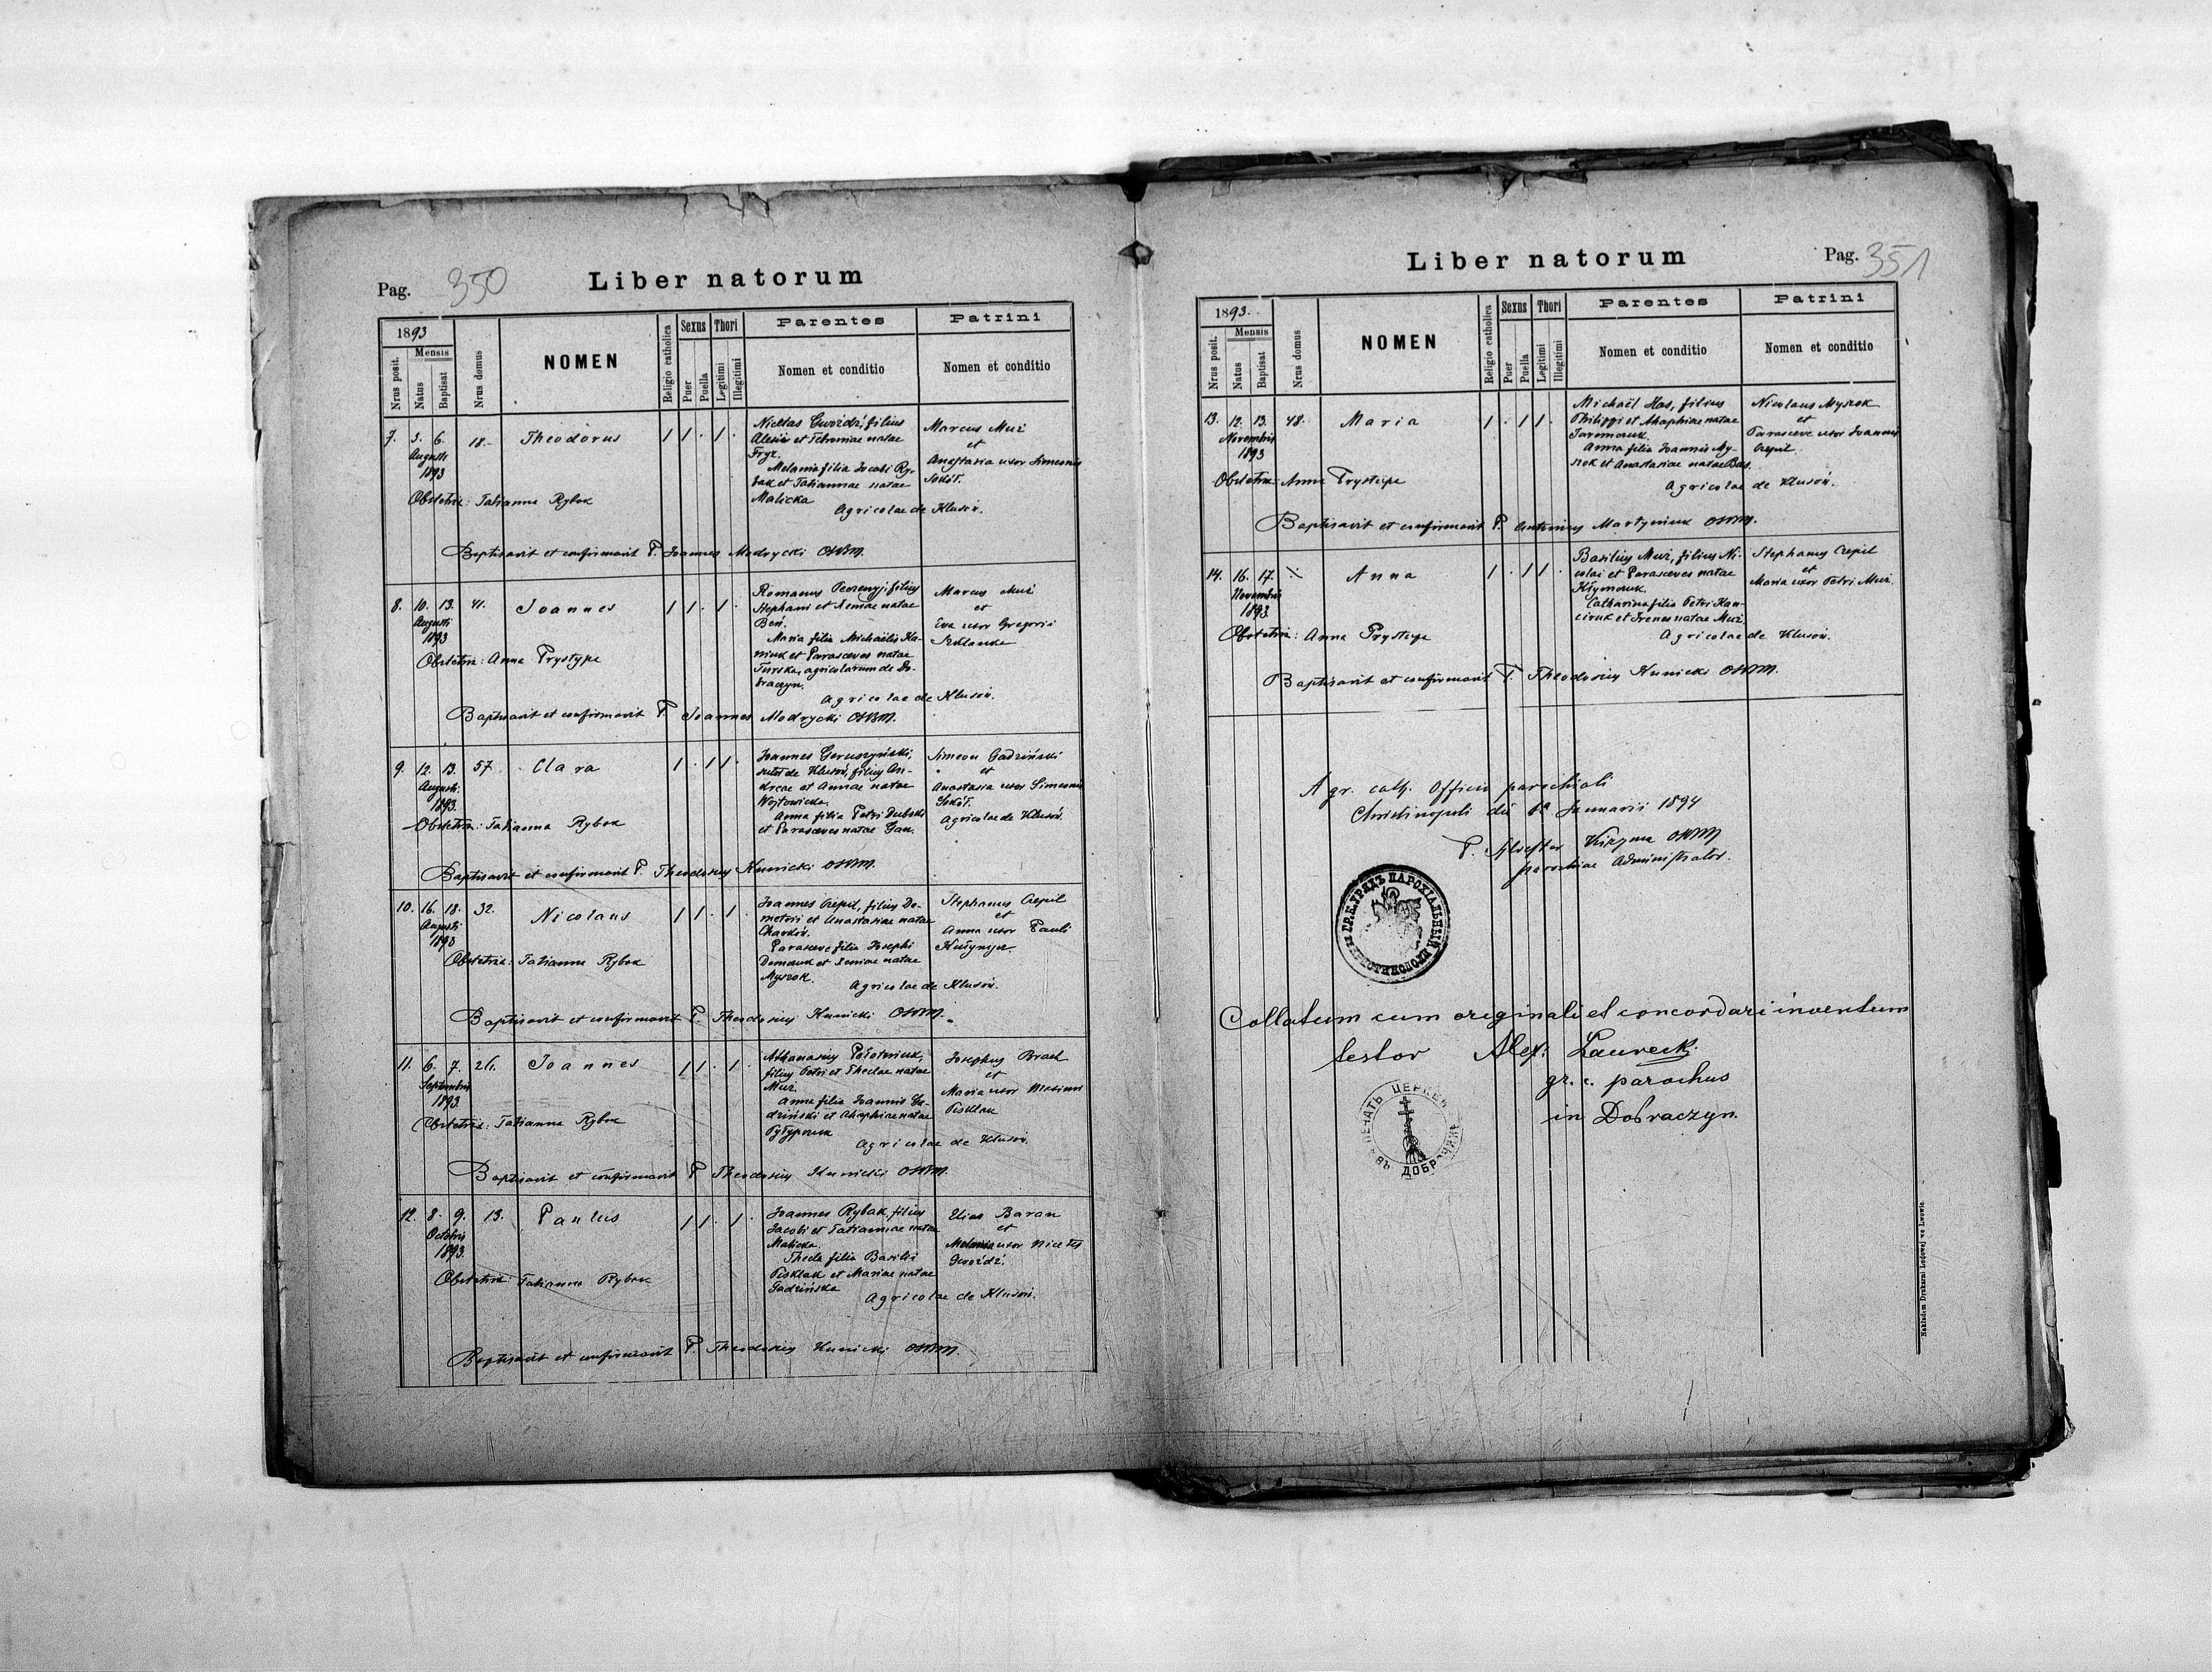 Pag. 350
Liber natorum
1893
Nrus posit.
Mensis
Natus
Baptisat
Nrus domus
NOMEN
Religio catholica
Sexus
Puer
Puella
Thori
Legitimi
Illegitimi
Parentes
Nomen et conditio
Patrini
Nomen et conditio
7. 5. 6. 18. Theodorus 1 1 . 1 .
Augusti
1893
Nicetas Gwóźdź, filius
Alexii et Febroniae natae
Fryz.
Melania filia Jacobi Ry-
bak et Tatiannae natae
Malicka
Agricolae de Klusów.
Marcus Muż
et
Anastasia uxor Simeonis
Sokół.
Obstetrix: Tatianna Rybak
Baptisavit et confirmavit P. Joannes Modrycki OSBM.
8. 10. 13. 41. Joannes 1 1 . 1 .
Augusti
1893
Romanus Peczenyj, filius
Stephani et Xeniae natae
Ben.
Maria filia Michaelis Ka-
niuk et Parasceves natae
Turska, agricolarum de Do-
braczyn.
Agricolae de Klusów.
Marcus Muż
et
Eva uxor Gregorii
Obstetrix: Anna Prystypa
Baptisavit et confirmavit P. Joannes Modrycki OSBM.
9. 12. 13. 57. Clara 1 . 1 1 .
Augusti
1893.
Joannes Geruszyński,
sutor de Klusów, filius An-
dreae et Annae natae
Wojtowicka.
Anna filia Petri Dubski
et Parasceves natae Gau.
Simeon Gadziński
et
Anastasia uxor Simeonis
Sokół.
Agricolae de Klusów.
Obstetrix: Tatianna Rybak
Baptisavit et confirmavit P. Theodosius Kunicki OSBM.
10. 16. 18. 32. Nicolaus 1 1 . 1 .
Augusti
1893
Joannes Czepil, filius De-
metrii et Anastasiae natae
Charków.
Parasceve filia Josephi
Demczuk et Xeniae natae
Myszok.
Agricolae de Klusów.
Stephanus Czepil
et
Anna uxor Pauli
Obstetrix: Tatianna Rybak
Baptisavit et confirmavit P. Theodosius Kunicki OSBM.
11. 6. 7. 26. Joannes 1 1 . 1 .
Septembris
1893.
Athanasius Połotniuk,
filius Petri et Theclae natae
Muż.
Anna filia Joannis Ga-
dziński et Ahaphiae natae
Pyłypczuk
Agricolae de Klusów.
Josephus Brach
et
Maria uxor Maximi
Pisklak
Obstetrix: Tatianna Rybak
Baptisavit et confirmavit P. Theodosius Kunicki OSBM.
12. 8. 9. 13. Paulus 1 1 . 1 .
Octobris
1893
Joannes Rybak, filius
Jacobi et Tatiannae natae
Malicka.
Thecla filia Basilii
Pisklak et Mariae natae
Gadzińska
Agricolae de Klusów.
Elias Baran
et
Melania uxor Nicetes
Gwóźdź.
Obstetrix: Tatianna Rybak
Baptisavit et confirmavit P. Theodosius Kunicki OSBM.
Liber natorum
Pag. 351
1893.
Nrus posit.
Mensis
Natus
Baptisat
Nrus domus
NOMEN
Religio catholica
Sexus
Puer
Puella
Thori
Legitimi
Illegitimi
Parentes
Nomen et conditio
Patrini
Nomen et conditio
13. 12. 13. 48. Maria 1 . 1 1 .
Novembris
1893
Michaël Has, filius
Philippi et Ahaphiae natae
Jaremczuk.
Anna filia Joannis My-
szok et Anastasiae natae Bas.
Agricolae de Klusów.
Nicolaus Myszok
et
Parasceve uxor Joannis
Czepil.
Obstetrix: Anna Prystupa
Baptisavit et confirmavit P. Antonius Martyniuk OSBM.
14. 16. 17. Anna 1 . 1 1 .
Novembris
1893.
Basilius Muż, filius Ni-
colai et Parasceves natae
Kłymczuk.
Catharina filia Petri Han-
ciruk et Irenes natae Muż.
Agricolae de Klusów.
Stephanus Czepil
et
Maria uxor Petri Muż.
Obstetrix: Anna Prystupa
Baptisavit et confirmavit P. Theodosius Kunicki OSBM.
A gr. cath. Officio parochiali
Christinopoli die Januarii 1894
P. Silvester Kizyma OSBM
parochiae Administrator.
ГР.К.УРЯДЪ ПАРОХІАЛЬНЫЙ
Collatum cum originali et concordari inventum
testor Alex: Laurecki
gr. c. parochus
in Dobraczyn.
ПЕЧАТЬ ЦЕРКВИ
ВЪ
Nakładem Drukarni Ludowej we Lwowie.